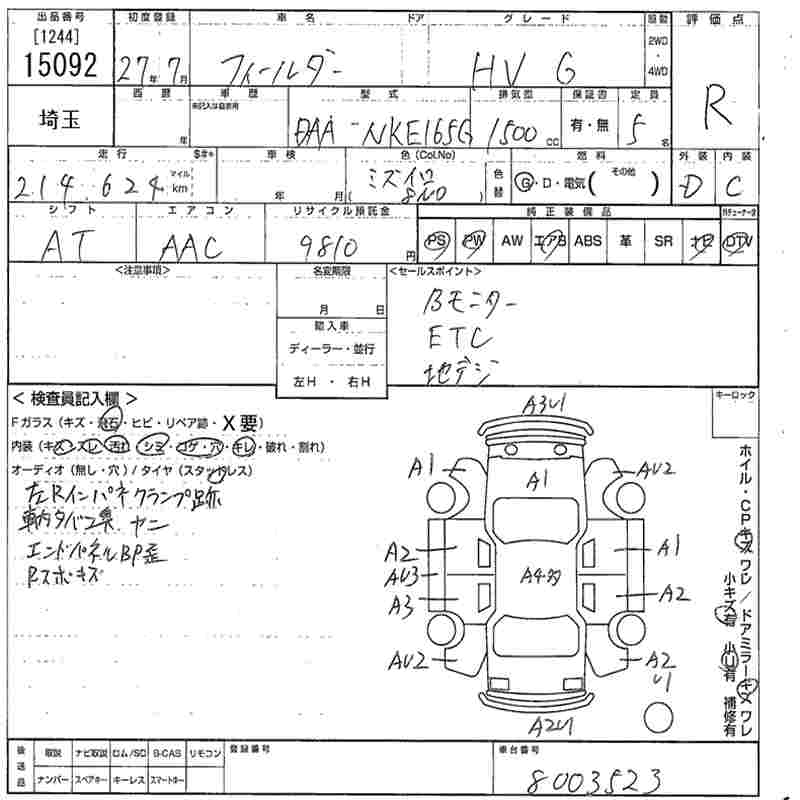 出品番号 初度登録 車名 ドア グレード 駆動 評価点
[1244]
15092 27年 7月 フィールダー HV G 2WD・4WD R
埼玉 西暦 年 車歴 型式 排気量 保証書 定員
DAA-NKE165G 1500cc 有・無 5名
走行 車検 色(Col.No) 燃料 外装 内装
214.624 マイル km 年 月 ミズイロ 色替 G・D・電気( その他 ) D C
( 8N0 )
シフト エアコン リサイクル預託金 純正装備品
AT AAC 9810円 PS PW AW エアB ABS 革 SR ナビ DTV
<注意事項> 名変期限 <セールスポイント>
月 日 Bモニター
輸入車 ETC
ディーラー・並行 地デジ
左H・右H
<検査員記入欄> キーロック
Fガラス(キズ・飛石・ヒビ・リペア跡・X要)
内装(キズ・ズレ・汚れ・シミ・コゲ・穴・キレ・破れ・割れ)
オーディオ(無し・穴)/タイヤ(スタッドレス)
左Rインパネクランプ跡
車内タバコ臭 ヤニ
エンドパネルBP歪
Rスポキズ
A3U1
A1 A1 AU2
A2 A1
AU3 A4多
A3 A2
AU2 A2
U1
A2U1
ホイル・CPキズ ワレ/ドアミラーキズ ワレ
小キズ有 小U有 補修有
後送品 取説 ナビ取説 ロム/SD B-CAS リモコン 登録番号 車台番号
ナンバー スペアキー キーレス スマートキー 8003523